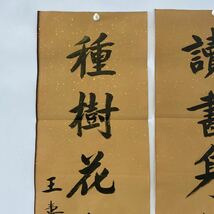 讀書身
種樹花
王